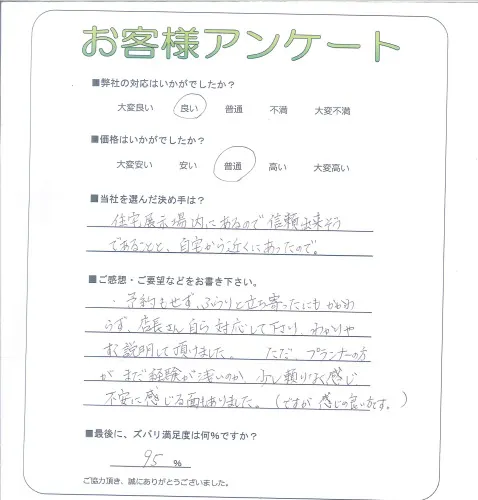 お客様アンケート
■弊社の対応はいかがでしたか?
大変良い 良い 普通 不満 大変不満
■価格はいかがでしたか?
大変安い 安い 普通 高い 大変高い
■当社を選んだ決め手は?
住宅展示場内にあるので信頼出来そう
であることと、自宅から近くにあったので。
■ご感想・ご要望などをお書き下さい。
・予約もせず、ふらりと立ち寄ったにもかかわ
らず、店長さん自ら対応して下り、わかりや
すく説明して頂けました。 ただ、プランナーの方
がまだ経験が浅いのか、少し頼りなく感じ
不安に感じる面もありました。(ですが感じの良い方です。)
■最後に、ズバリ満足度は何%ですか?
95 %
ご協力頂き、誠にありがとうございました。